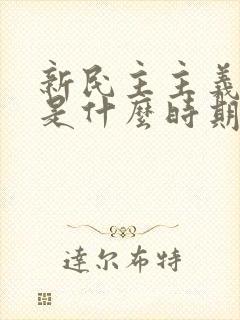 新民主主義
是什麼時期
達尔布特